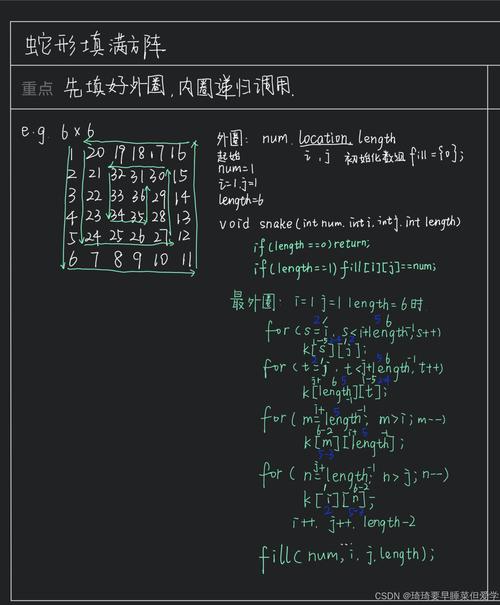 蛇形填满方阵
重点 先填好外圈,内圈递归调用.
e.g. 6×6
1 20 19 18 17 16
2 21 32 31 30 15
3 22 33 36 29 14
4 23 34 35 28 13
5 24 25 26 27 12
6 7 8 9 10 11
外圈: num. location. length
起始 i , j 初始化数组 fill={0};
num=1
i=1.j=1
length=6
void snake(int num.int i,int j.int length)
if(length==0)return;
if(length==1)fill[i][j]==num;
最外圈: i=1 j=1 length=6时
for(s=i. s<i+length-1;s++)
k[s][j];
for(t=j. t<j+length-1;t++)
k[i+length-1][t];
for(m=i+length-1; m>i;m--)
k[m][j+length-1];
for(n=j+length-1 n>j;n--)
k[i][n];
i++. j++. length-2
...
fill(num,i.j.length);
CSDN @琦琦要早睡菜但爱学